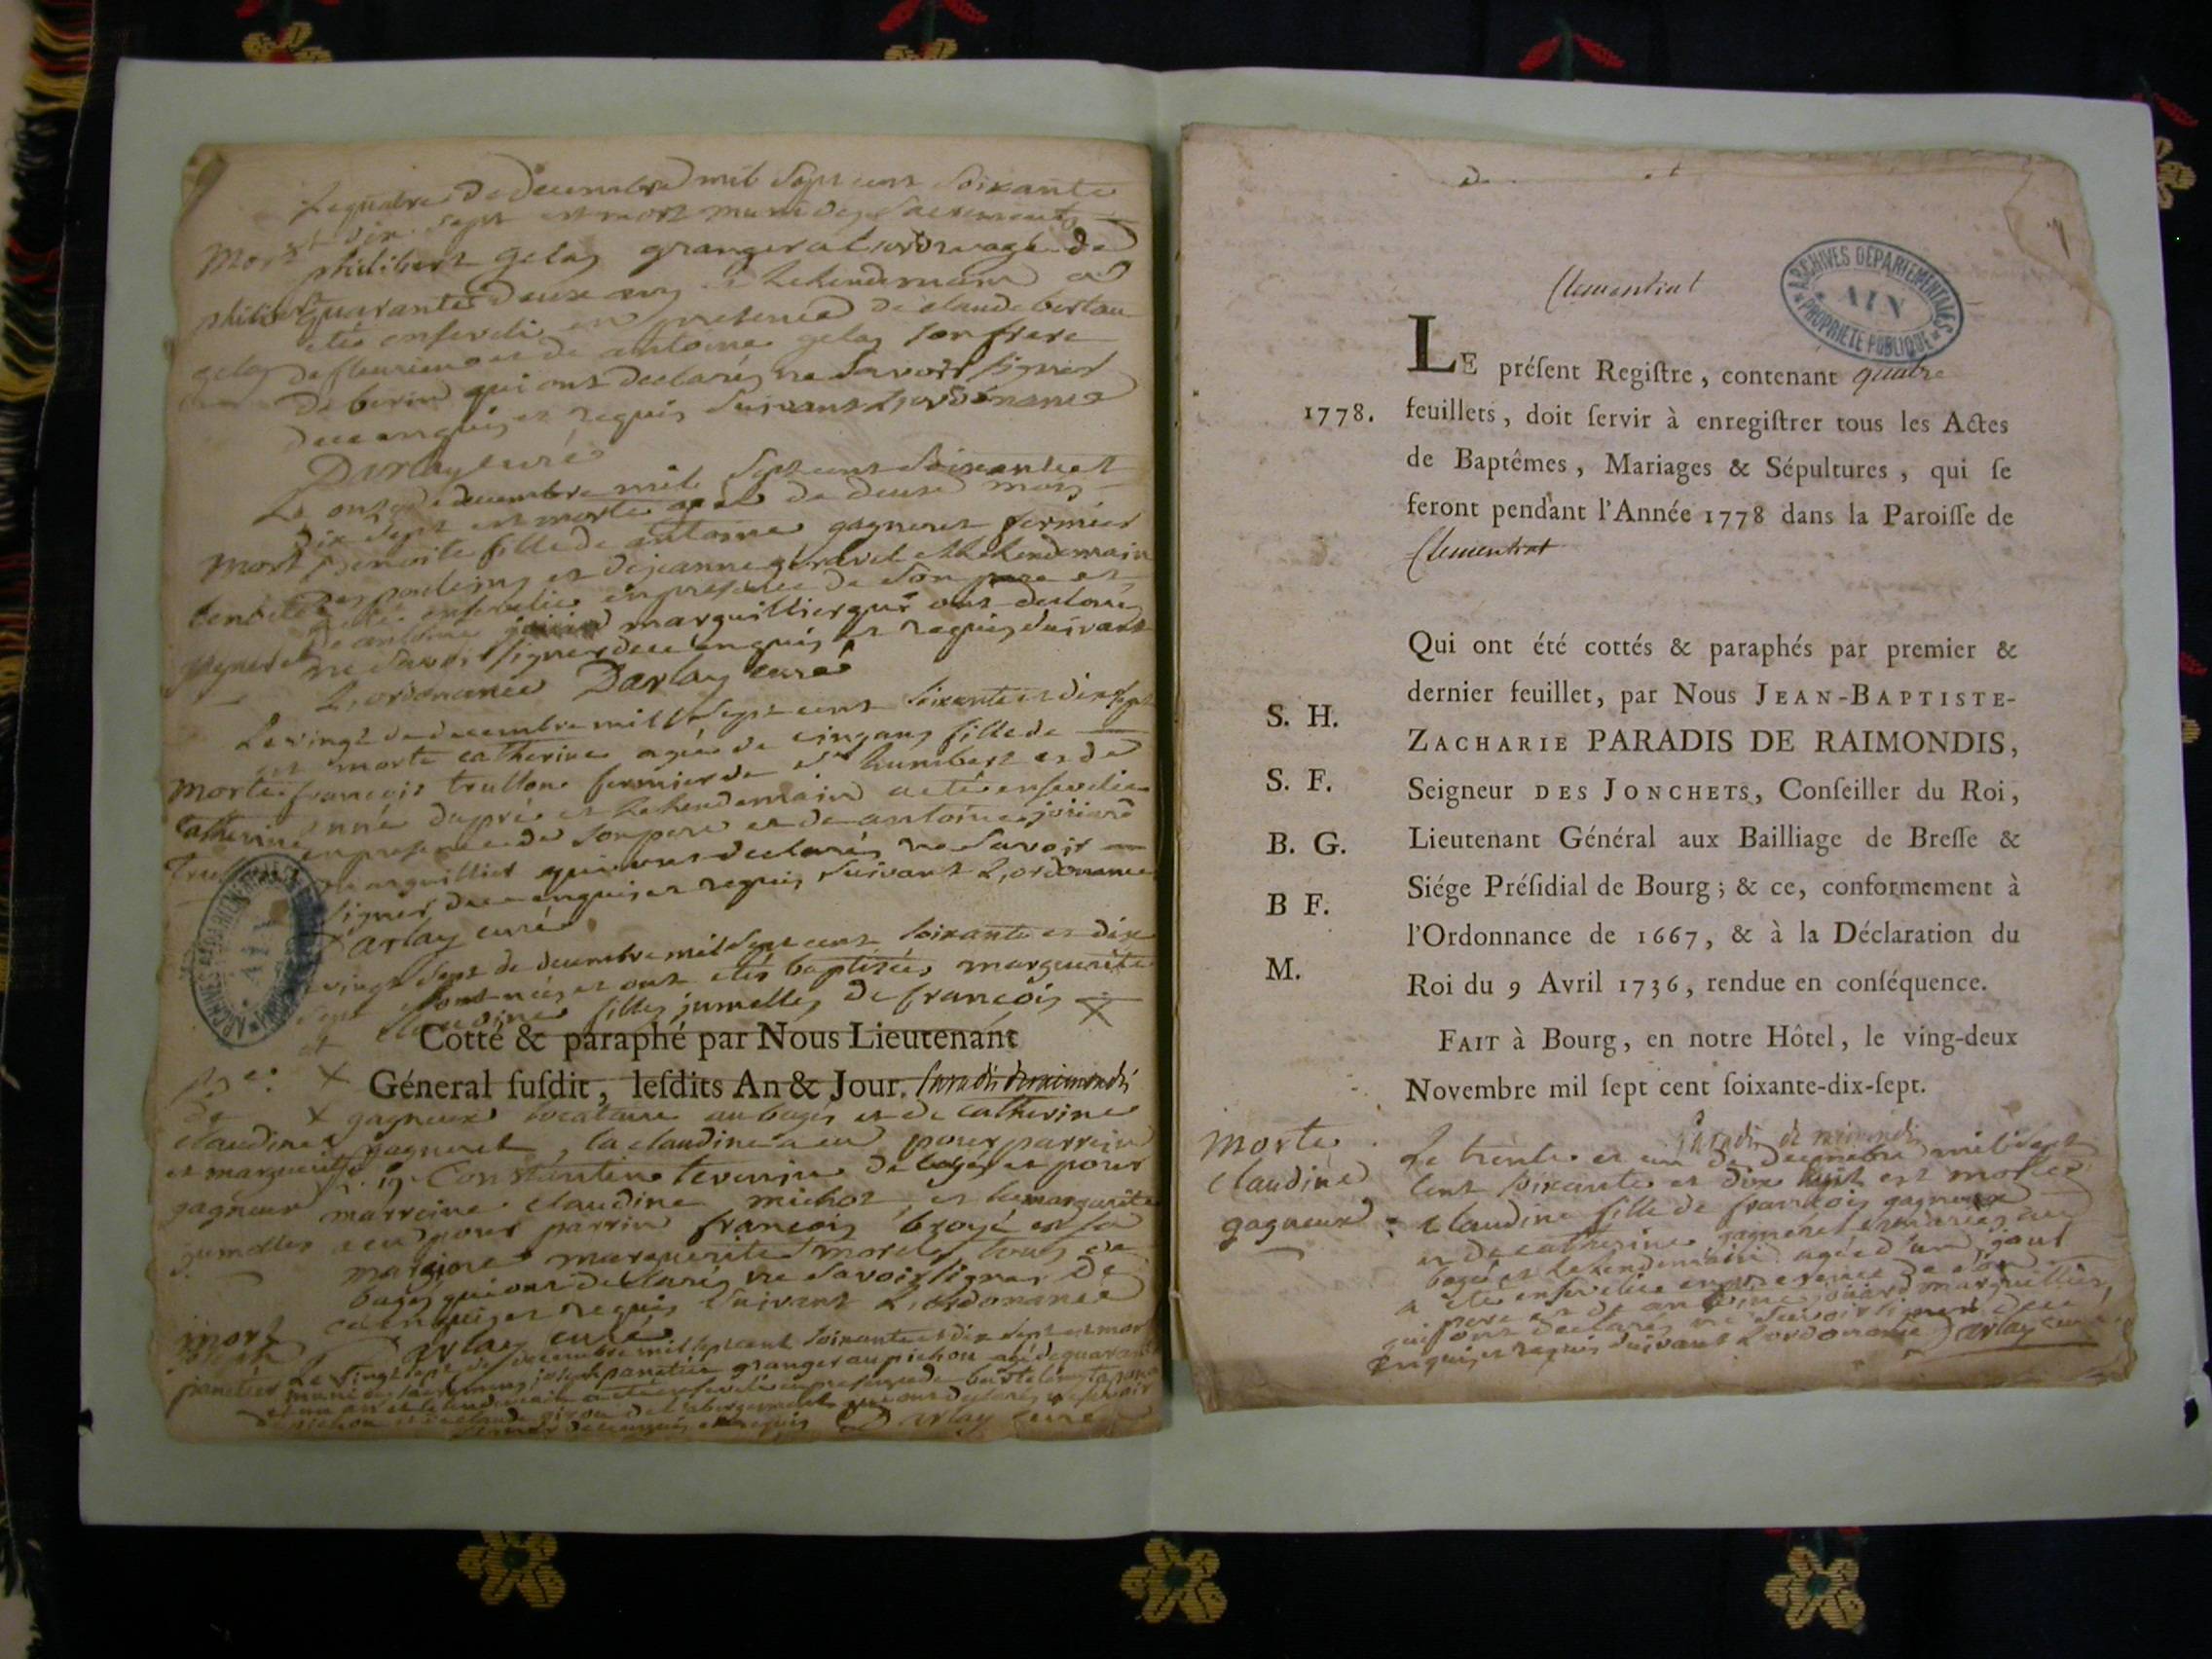 Le quatre de decembre mil sept cent soixante
dix sept est mort muni des sacrements
Mort philibert gelas granger al age de
philibert quarante deux ans et le lendemain a
eté enseveli en presence de claude
gelas de fleurieu et de antoine gelas son frere
de qui ont declarés ne savoir signer
de ce enquis et requis suivant l'ordonance
Darlay curé
Le onze decembre mil sept cent soixante et
dix sept est morte agée de deux mois
Mort benoite fille de antoine gagneret fermier
benoite des et de jeanne et le lendemain
a eté ensevelie en presence de son pere et
gagneret de antoine marguillier qui ont declarés
ne savoir signer de ce enquis et requis suivant
L'ordonance Darlay curé
Le vingt de decembre mil sept cent soixante et dix sept
est morte catherine agée de cinq ans fille de
Morte francois trullon fermier de st humbert et de
Catherine duprés et le lendemain a eté ensevelie
en presence de son pere et de antoine
marguillier qui ont declarés ne savoir
signer de ce enquis et requis suivant L'ordonance
Darlay curé
vingt sept de decembre mil sept cent soixante et dix
sept sont nées et ont etés baptisées marguerite
et claudine filles jumelles de francois X
Cotté & paraphé par Nous Lieutenant
Géneral suſdit, leſdits An & Jour. Paradis deraimondis
X
X gagneux locataire au bagés et de catherine
claudine gagneret, la claudine a eu pour parrein
et marguerite Constantin de bagés et pour
gagneux marreine claudine michot et la marguerite
jumelles a eu pour parrin francois et sa
mareine marguerite morel, tous de
bagés qui ont declarés ne savoir signer de
ce enquis et requis suivant L'ordonance
mort Darlay curé
joseph Le vingt sept de decembre mil sept cent soixante et dix sept est mort
panetier muni des sacremens joseph panetier granger au pichon agé de quarante
un an et le lendemain a eté enseveli en presence de
pichon et de claude qui ont declarés ne savoir
signer de ce enquis et requis Darlay curé
Clementiat
ARCHIVES DÉPARTEMENTALES
AIN
PROPRIÉTÉ PUBLIQUE
LE préſent Regiſtre, contenant quatre
1778. feuillets, doit ſervir à enregiſtrer tous les Actes
de Baptêmes, Mariages & Sépultures, qui ſe
feront pendant l'Année 1778 dans la Paroiſſe de
Clementiat
Qui ont été cottés & paraphés par premier &
dernier feuillet, par Nous JEAN-BAPTISTE-
S. H.
ZACHARIE PARADIS DE RAIMONDIS,
S. F. Seigneur DES JONCHETS, Conſeiller du Roi,
B. G. Lieutenant Général aux Bailliage de Breſſe &
Siége Préſidial de Bourg; & ce, conformement à
B F.
l'Ordonnance de 1667, & à la Déclaration du
M. Roi du 9 Avril 1736, rendue en conſéquence.
FAIT à Bourg, en notre Hôtel, le ving-deux
Novembre mil ſept cent ſoixante-dix-ſept.
Paradis de raimondis
morte Le trente et un de decembre mil sept
claudine cent soixante et dix huit est morte
gagneux claudine fille de francois gagneux
et de catherine gagneret mariés au
bagés et le lendemain agée d'un jour
a eté ensevelie en presence de son
pere et de antoine marguillier,
qui ont declarés ne savoir signer de ce
enquis et requis suivant L'ordonance Darlay curé